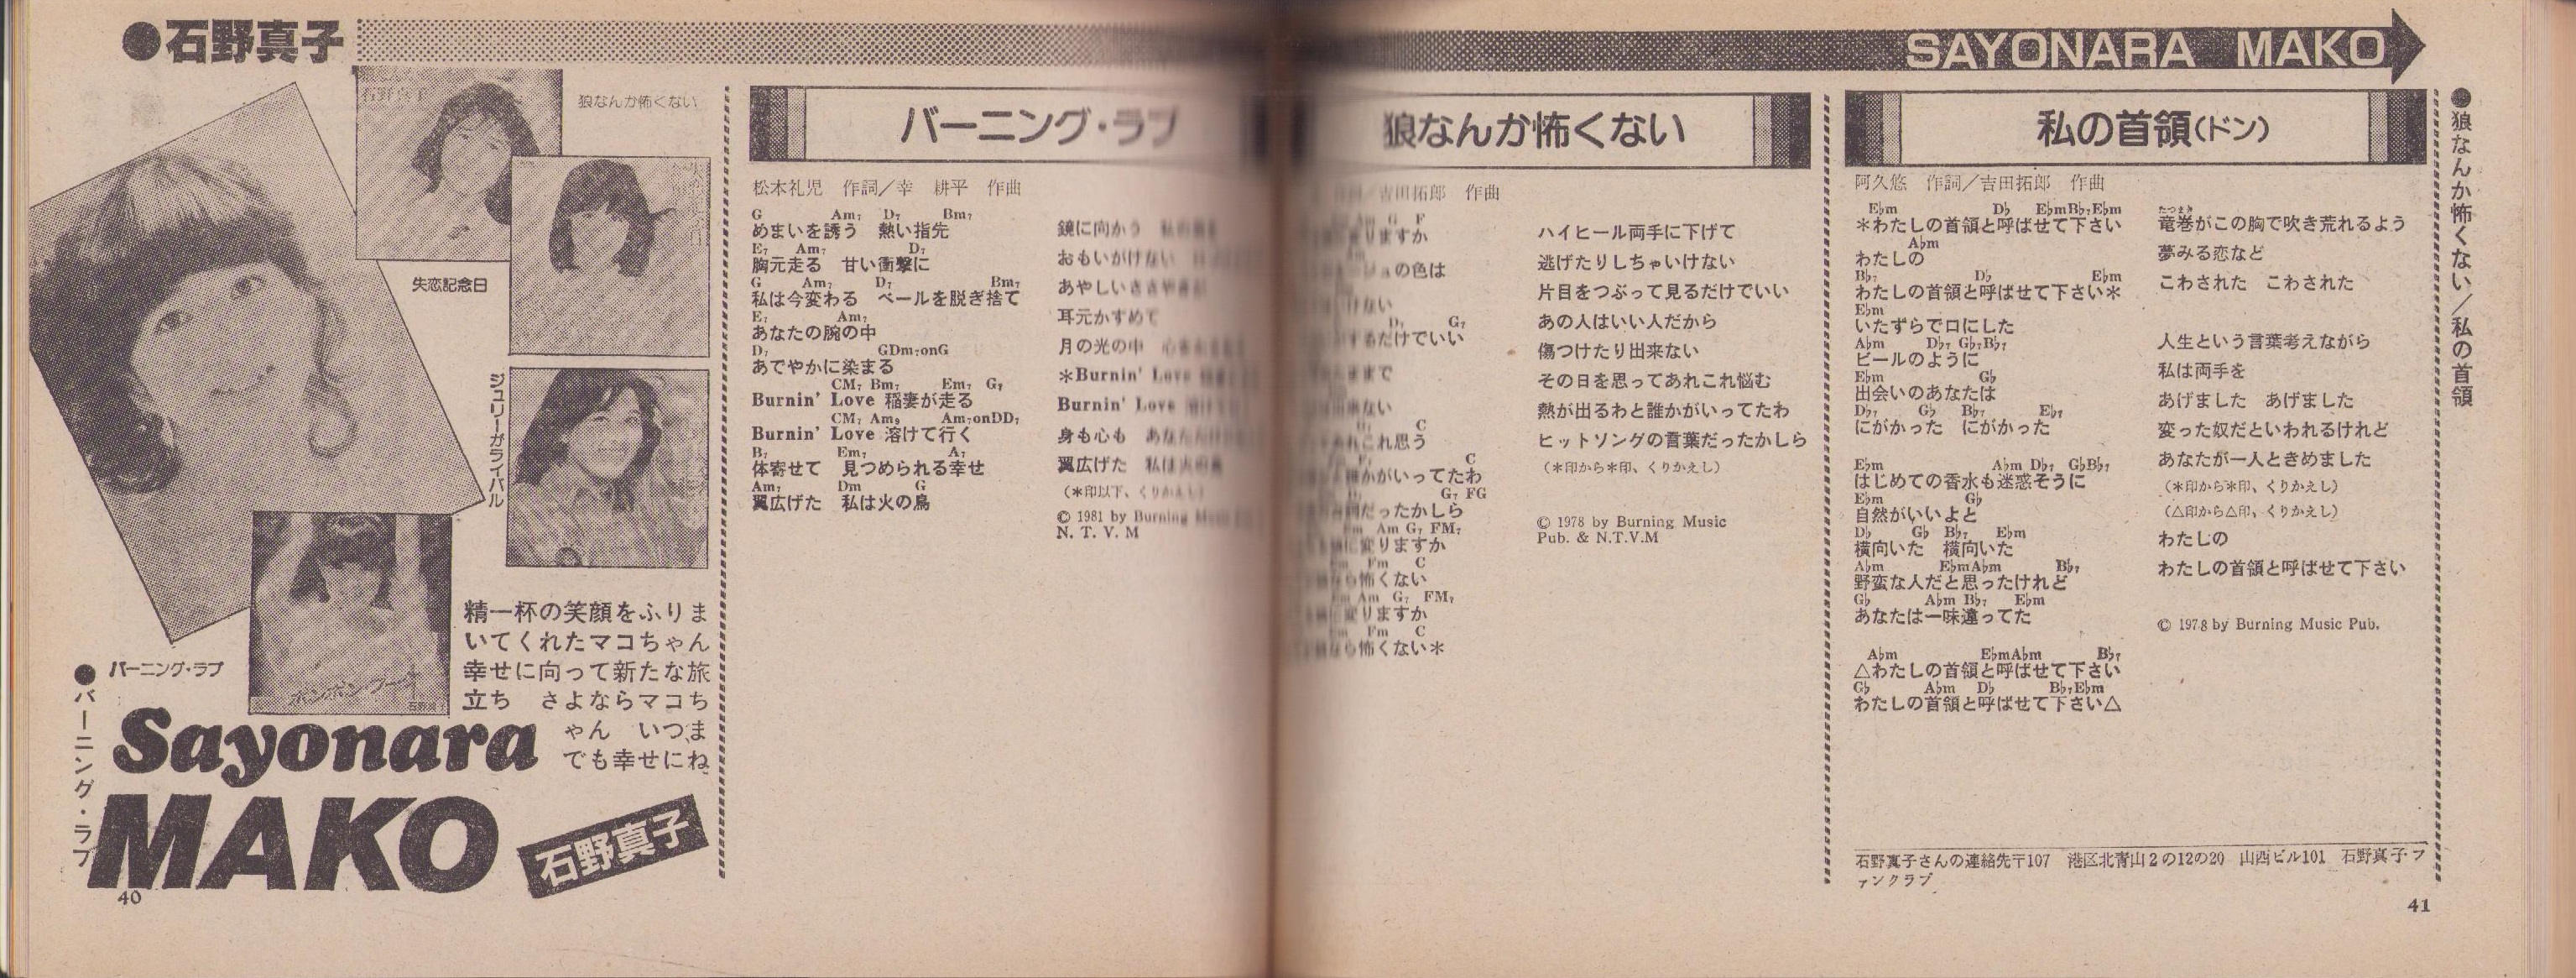 ●石野真子
狼なんか怖くない
石野真子
失恋記念日
ジュリーがライバル
バーニング・ラブ
精一杯の笑顔をふりま
いてくれたマコちゃん
幸せに向って新たな旅
立ち　さよならマコち
ゃん　いつま
でも幸せにね
Sayonara
MAKO
石野真子
●バーニング・ラブ
40
バーニング・ラブ
松本礼児　作詞／幸　耕平　作曲
G Am7 D7 Bm7
めまいを誘う　熱い指先
E7 Am7 D7
胸元走る　甘い衝撃に
G Am7 D7 Bm7
私は今変わる　ベールを脱ぎ捨て
E7 Am7
あなたの腕の中
D7 GDm7onG
あでやかに染まる
CM7 Bm7 Em7 G7
Burnin' Love 稲妻が走る
CM7 Am9 Am7onDD7
Burnin' Love 溶けて行く
B7 Em7 A7
体寄せて　見つめられる幸せ
Am7 Dm G
翼広げた　私は火の鳥
鏡に向かう
おもいがけない
あやしいささやきが
耳元かすめて
月の光の中
＊Burnin' Love
Burnin' Love
身も心も　あなただけ
翼広げた　私は火の鳥
（＊印以下、くりかえし）
© 1981 by Burning Music
N. T. V. M
SAYONARA MAKO
狼なんか怖くない
吉田拓郎　作曲
Am G F
ますか
の色は
けない
D7 G7
するだけでいい
ままで
出来ない
C
あれこれ思う
C
誰かがいってたわ
G7 FG
だったかしら
Em Am G7 FM7
変りますか
Em Fm C
なら怖くない
Em Am G7 FM7
変りますか
Em Fm C
なら怖くない＊
ハイヒール両手に下げて
逃げたりしちゃいけない
片目をつぶって見るだけでいい
あの人はいい人だから
傷つけたり出来ない
その日を思ってあれこれ悩む
熱が出るわと誰かがいってたわ
ヒットソングの言葉だったかしら
（＊印から＊印、くりかえし）
© 1978 by Burning Music
Pub. & N.T.V.M
私の首領（ドン）
阿久悠　作詞／吉田拓郎　作曲
E♭m D♭ E♭mB♭7E♭m
＊わたしの首領と呼ばせて下さい
A♭m
わたしの
B♭7 D♭ E♭m
わたしの首領と呼ばせて下さい＊
E♭m
いたずらで口にした
A♭m D♭7 G♭7B♭7
ビールのように
E♭m G♭
出会いのあなたは
D♭7 G♭ B♭7 E♭7
にがかった　にがかった
E♭m A♭m D♭7 G♭B♭7
はじめての香水も迷惑そうに
E♭m G♭
自然がいいよと
D♭ G♭ B♭7 E♭m
横向いた　横向いた
A♭m E♭mA♭m B♭7
野蛮な人だと思ったけれど
G♭ A♭m B♭7 E♭m
あなたは一味違ってた
A♭m E♭mA♭m B♭7
△わたしの首領と呼ばせて下さい
G♭ A♭m D♭ B♭7E♭m
わたしの首領と呼ばせて下さい△
たつまき
竜巻がこの胸で吹き荒れるよう
夢みる恋など
こわされた　こわされた
人生という言葉考えながら
私は両手を
あげました　あげました
変った奴だといわれるけれど
あなたが一人ときめました
（＊印から＊印、くりかえし）
（△印から△印、くりかえし）
わたしの
わたしの首領と呼ばせて下さい
© 1978 by Burning Music Pub.
石野真子さんの連絡先〒107　港区北青山2の12の20　山西ビル101　石野真子フ
ァンクラブ
●狼なんか怖くない／私の首領
41